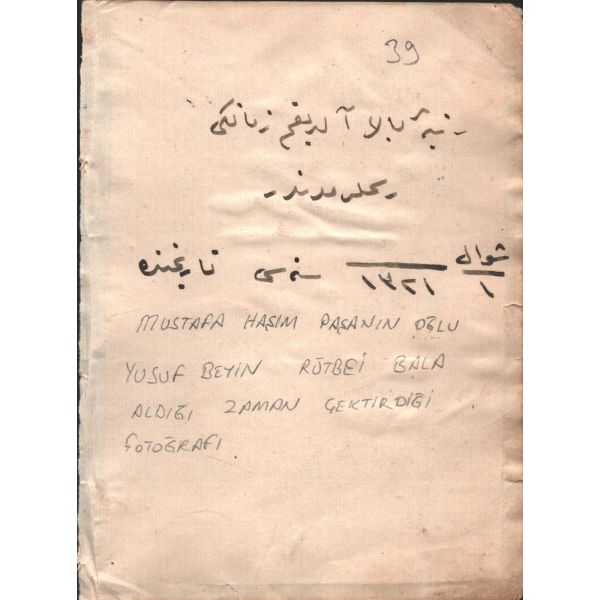 39
رتبهٔ بالا آلدیغم زمانکی
رسملرمدندر
١ شوال ١٣٢١ سنه‌سی تاریخنده
MUSTAFA HAŞIM PAŞANIN OĞLU
YUSUF BEYIN RÜTBEİ BALA
ALDIĞI ZAMAN ÇEKTIRDİĞİ
FOTOĞRAFI